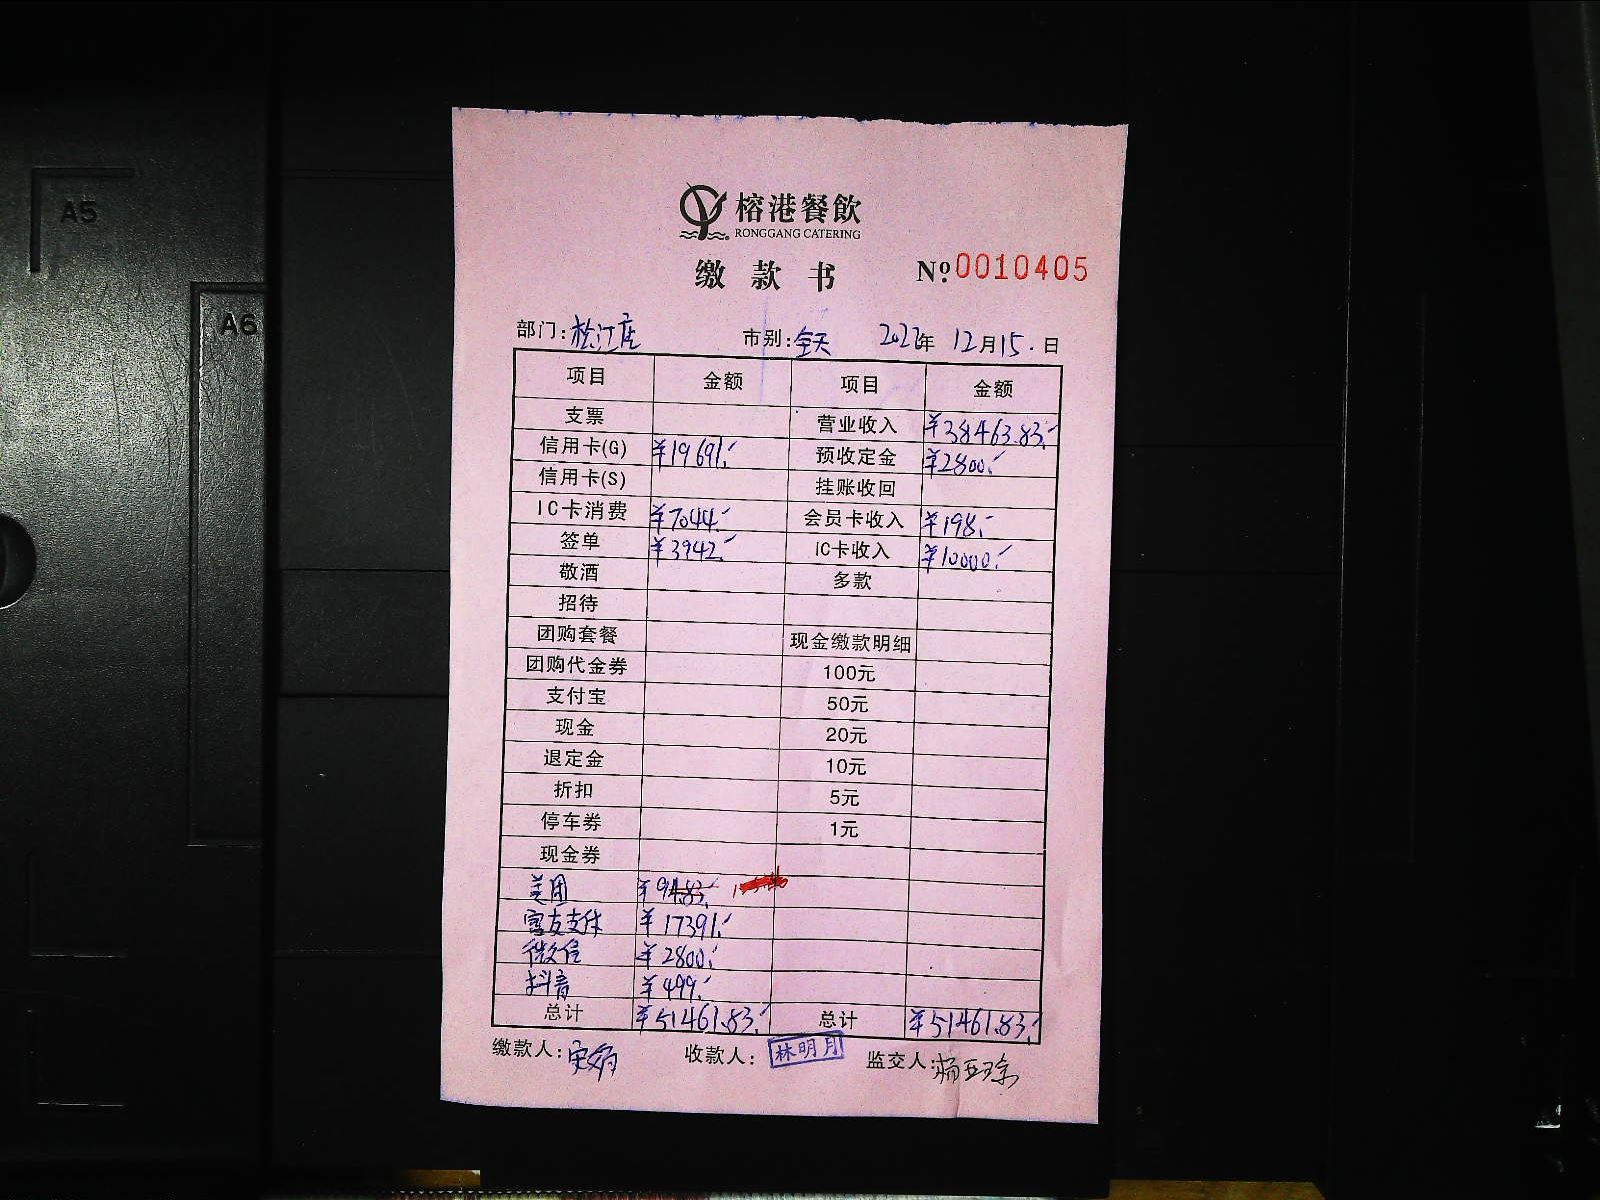 A5
A6
榕港餐飲
RONGGANG CATERING
缴款书 №0010405
部门:松江店 市别:全天 2022年 12月15.日
项目 金额 项目 金额
支票 营业收入 ¥38463.83.-
信用卡(G) ¥19691.- 预收定金 ¥2800.-
信用卡(S) 挂账收回
IC卡消费 ¥7044.- 会员卡收入 ¥198.-
签单 ¥3942.- IC卡收入 ¥10000.-
敬酒 多款
招待
团购套餐 现金缴款明细
团购代金券 100元
支付宝 50元
现金 20元
退定金 10元
折扣 5元
停车券 1元
现金券
美团 ¥94.83.-
富友支付 ¥17391.-
微信 ¥2800.-
抖音 ¥499.-
总计 ¥51461.83.- 总计 ¥51461.83.-
缴款人: 收款人: 林明月 监交人: